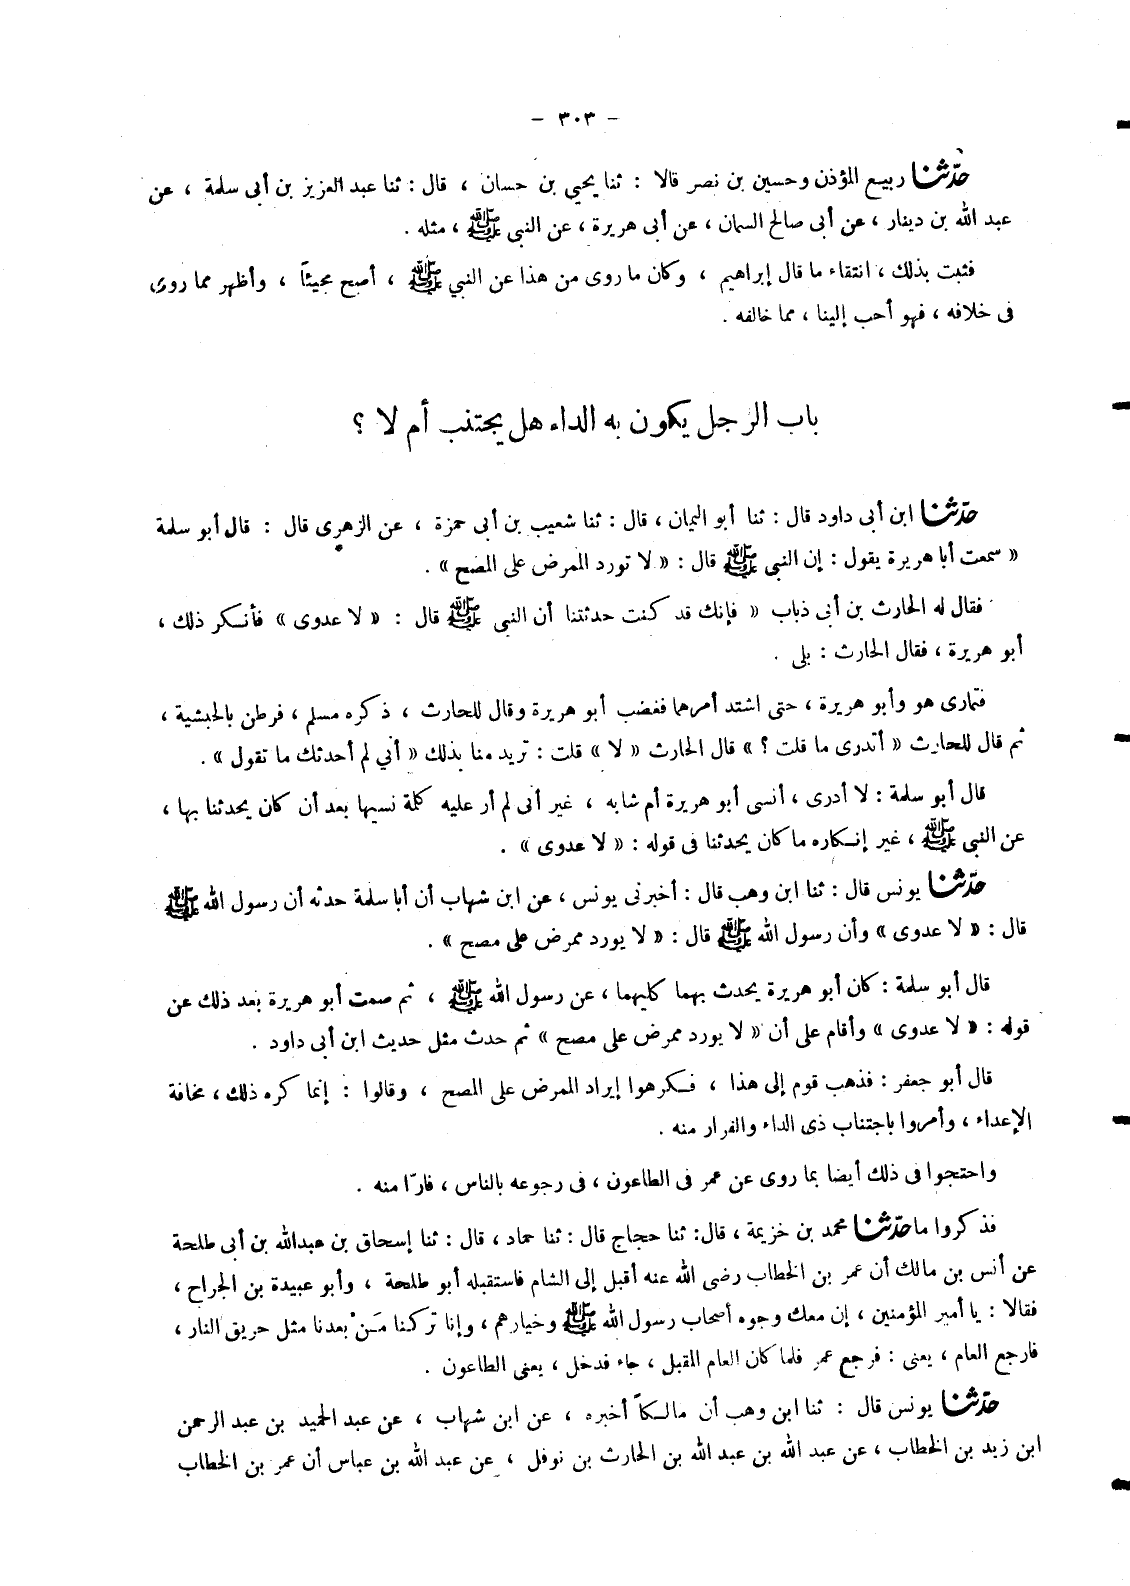 - ٣٠٣ -
حدّثنا ربيع المؤذن وحسين بن نصر قالا : ثنا يحيي بن حسان ، قال : ثنا عبد العزيز بن أبى سلمة ، عن
عبد الله بن دينار ، عن أبى صالح السمان ، عن أبى هريرة ، عن النبى ﷺ ، مثله .
فثبت بذلك ، انتقاء ما قال إبراهيم ، وكان ما روى من هذا عن النبي ﷺ ، أصح مجيئاً ، وأظهر مما روى،
فى خلافه ، فهو أحب إلينا ، مما خالفه .
باب الرجل يكون به الداء هل يجتنب أم لا ؟
حدّثنا ابن أبى داود قال : ثنا أبو اليمان ، قال : ثنا شعيب بن أبى حمزة ، عن الزهرى قال : قال أبو سلمة
« سمعت أبا هريرة يقول : إن النبى ﷺ قال : « لا تورد الممرض على المصح » .
فقال له الحارث بن أبى ذباب « فإنك قد كنت حدثتنا أن النبى ﷺ قال : « لا عدوى » فأنكر ذلك ،
أبو هريرة ، فقال الحارث : بلى .
فتمارى هو وأبو هريرة ، حتى اشتد أمرهما فغضب أبو هريرة وقال للحارث ، ذكره مسلم ، فرطن بالحبشية ،
ثم قال للحارث « أتدرى ما قلت ؟ » قال الحارث « لا » قلت : تريد منا بذلك « أني لم أحدثك ما تقول » .
قال أبو سلمة : لا أدرى ، أنسى أبو هريرة أم شابه ، غير أنى لم أر عليه كلمة نسيها بعد أن كان يحدثنا بها ،
عن النبى ﷺ ، غير إنكاره ما كان يحدثنا فى قوله : « لا عدوى » .
حدّثنا يونس قال : ثنا ابن وهب قال : أخبرنى يونس ، عن ابن شهاب أن أبا سلمة حدثه أن رسول الله ﷺ
قال : « لا عدوى » وأن رسول الله ﷺ قال : « لا يورد ممرض على مصح » .
قال أبو سلمة : كان أبو هريرة يحدث بهما كليهما ، عن رسول الله ﷺ ، ثم صمت أبو هريرة بعد ذلك عن
قوله : « لا عدوى » وأقام على أن « لا يورد ممرض على مصح » ثم حدث مثل حديث ابن أبى داود .
قال أبو جعفر : فذهب قوم إلى هذا ، فكرهوا إيراد الممرض على المصح ، وقالوا : إنما كره ذلك ، مخافة
الإعداء ، وأمروا باجتناب ذى الداء والفرار منه .
واحتجوا فى ذلك أيضا بما روى عن عمر فى الطاعون ، فى رجوعه بالناس ، فارّا منه .
فذكروا ما حدّثنا محمد بن خزيمة ، قال: ثنا حجاج قال : ثنا حماد ، قال : ثنا إسحاق بن عبدالله بن أبى طلحة
عن أنس بن مالك أن عمر بن الخطاب رضى الله عنه أقبل إلى الشام فاستقبله أبو طلحة ، وأبو عبيدة بن الجراح ،
فقالا : يا أمير المؤمنين ، إن معك وجوه أصحاب رسول الله ﷺ وخيارهم ، وإنا تركنا مَنْ بعدنا مثل حريق النار ،
فارجع العام ، يعنى : فرجع عمر فلما كان العام المقبل ، جاء فدخل ، يعنى الطاعون .
حدّثنا يونس قال : ثنا ابن وهب أن مالكاً أخبره ، عن ابن شهاب ، عن عبد الحميد بن عبد الرحمن
ابن زيد بن الخطاب ، عن عبد الله بن عبد الله بن الحارث بن نوفل ، عن عبد الله بن عباس أن عمر بن الخطاب